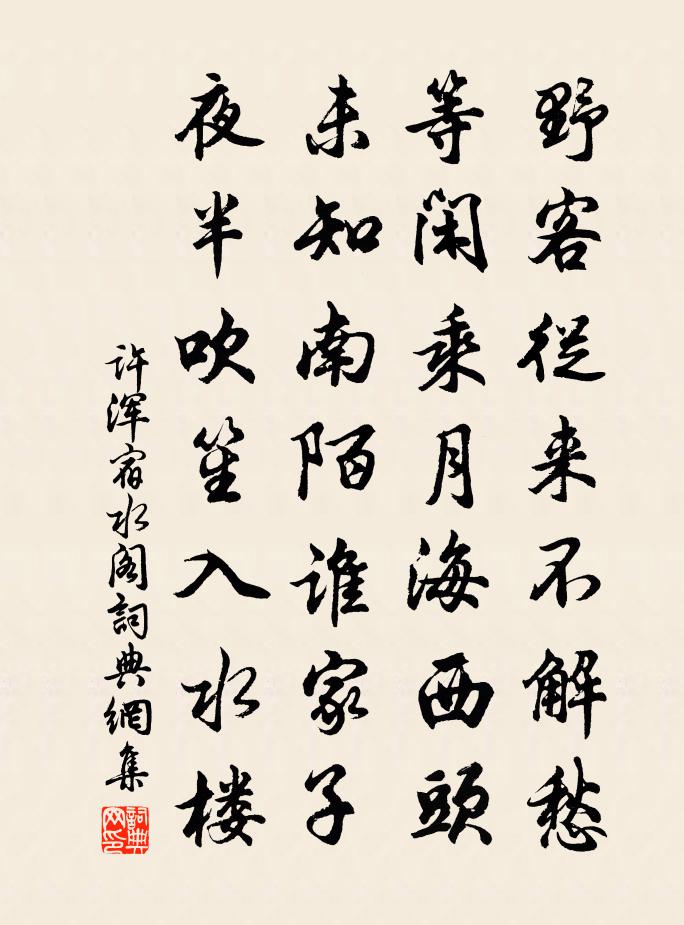 野客從来不解愁
等閑乘月海西頭
未知南陌誰家子
夜半吹笙入水楼
許渾宿水阁詞典網集
詞典网印